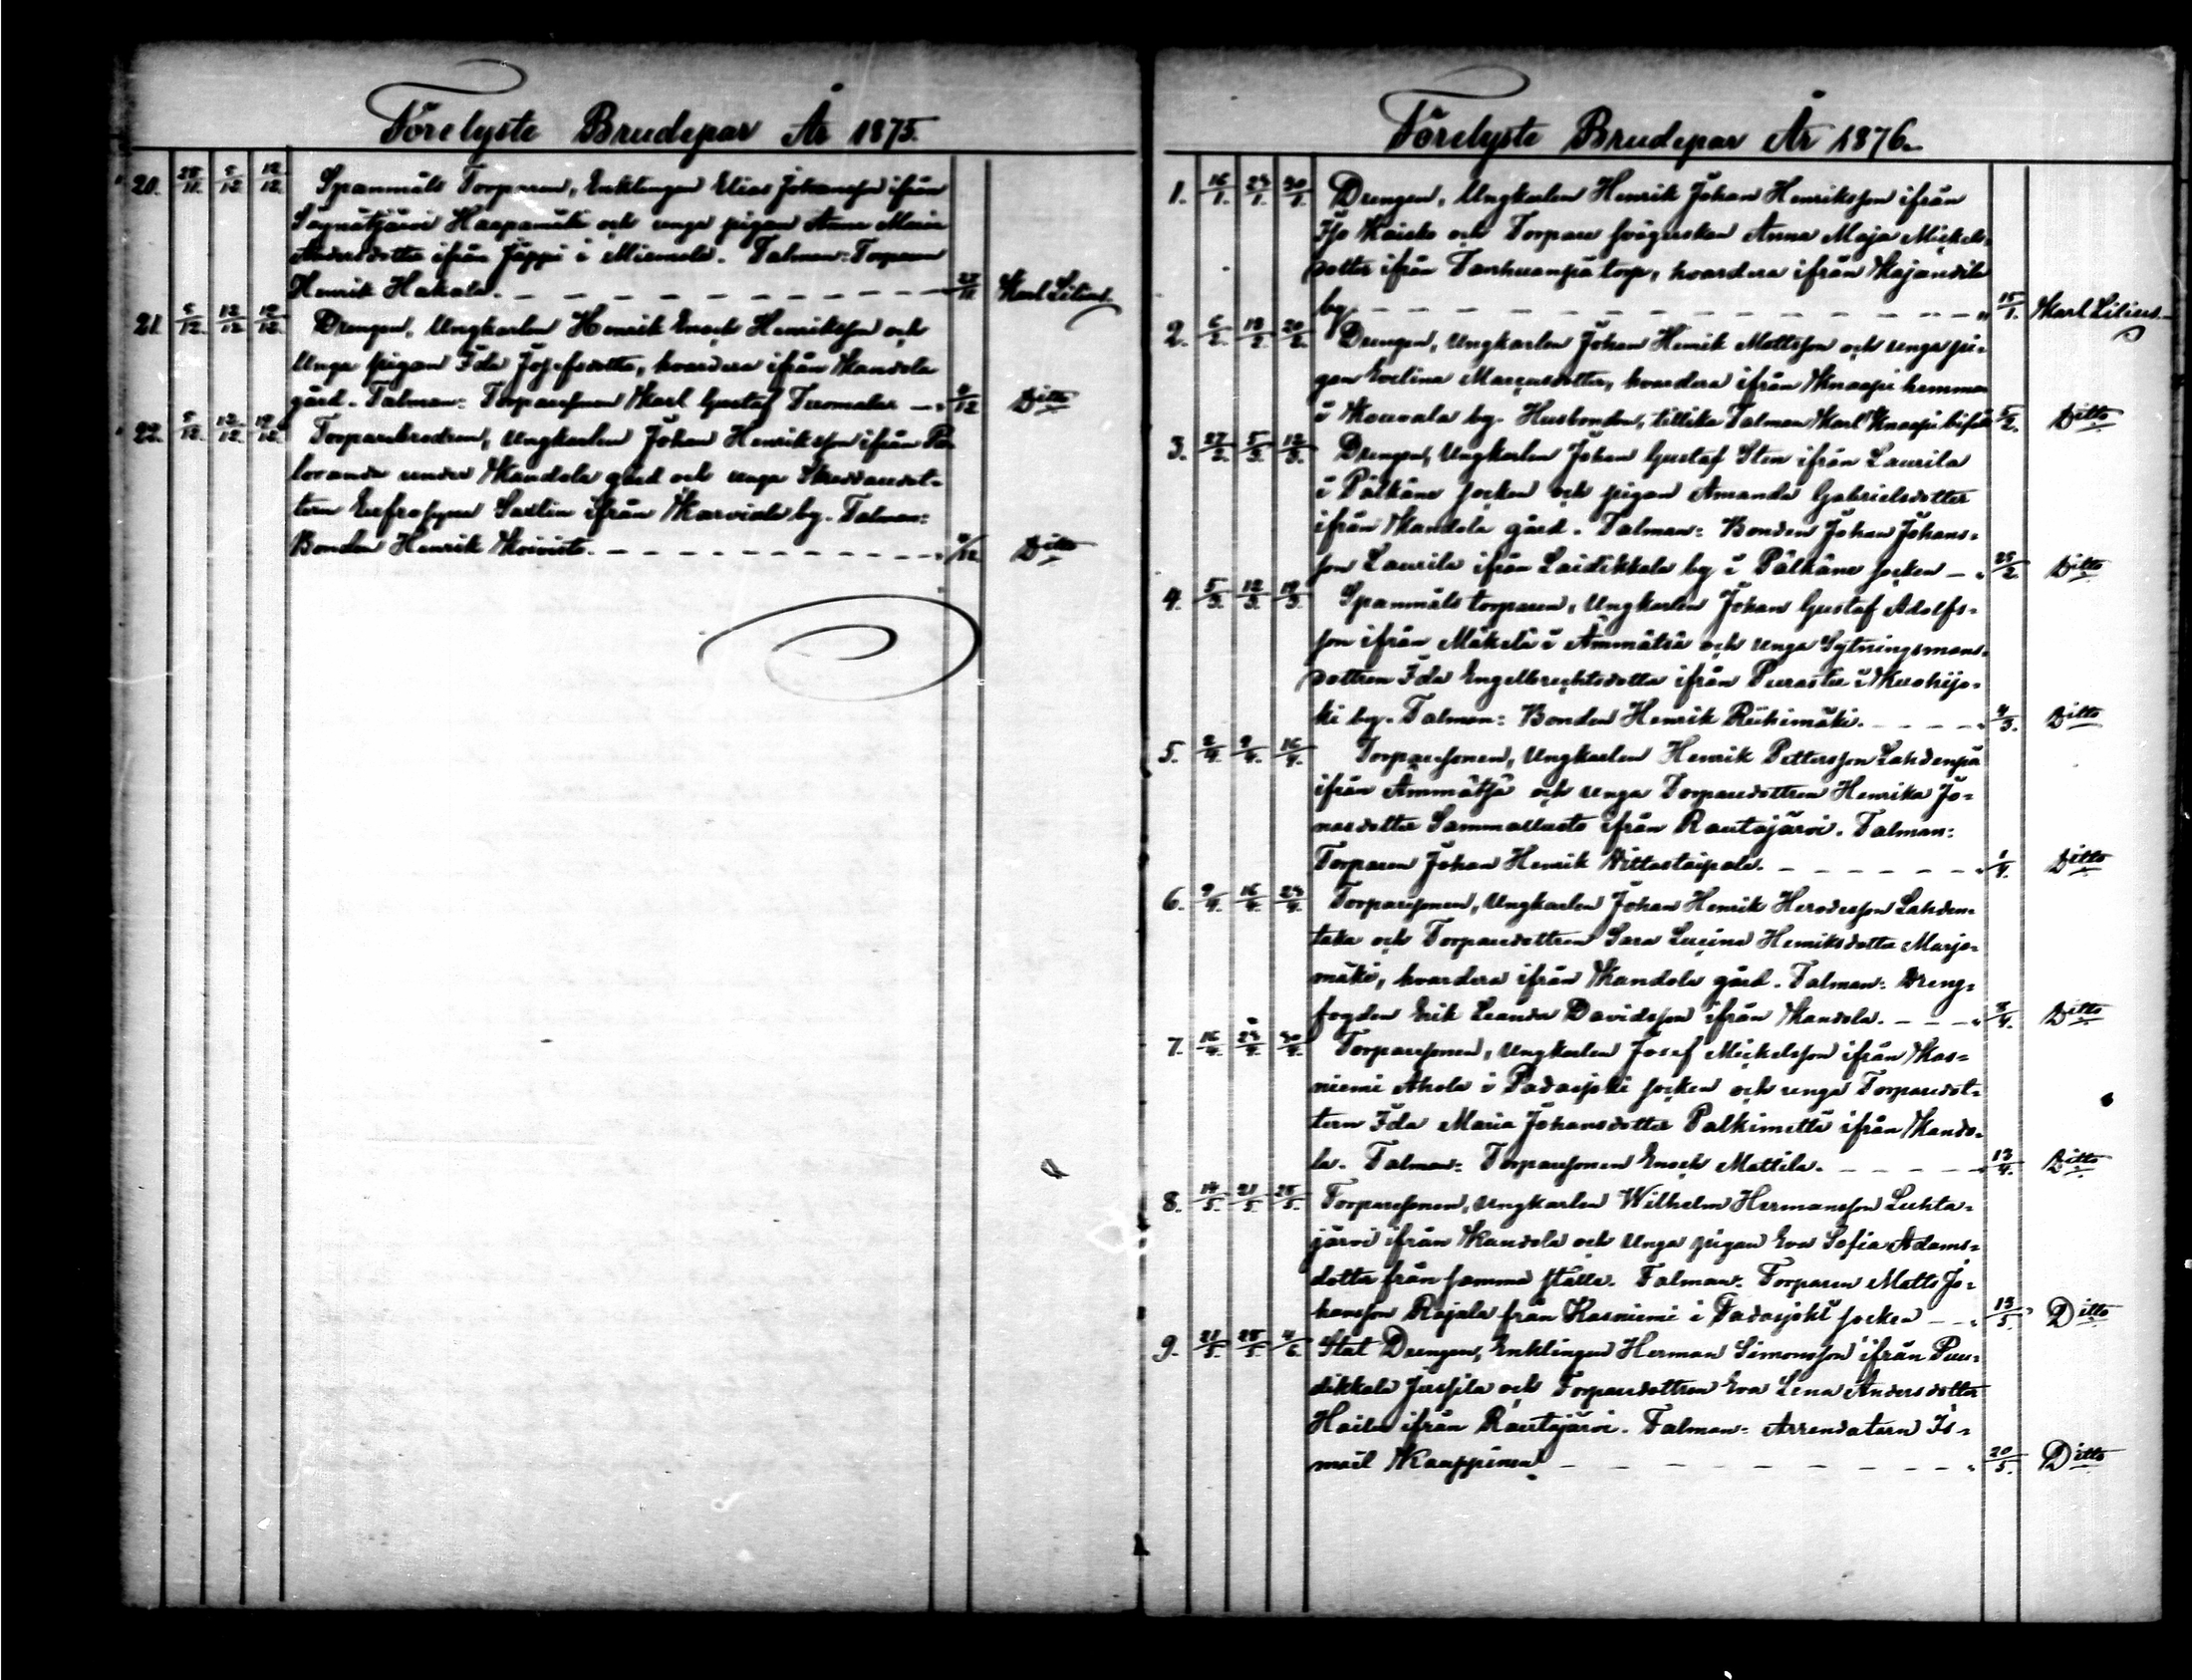 Förelyste Brudepar År 1875.
20. 28/11. 5/12 12/12. Spanmåls Torparen, Enklingen Elias Johansson ifrån
Haapamäki och unga pigan Anna Maria
Andersdotter ifrån Jäppi i Miemola. Talman: Torparen
Henrik Hakala. 27/11. Karl Lilius.
21. 5/12. 12/12 19/12. Drengen, Ungkarlen Henrik Enoch Henriksson och
Unga pigan Ida Josefsdotter, hvardera ifrån Kandola
gård. Talman: Torparesonen Karl Gustaf Tuomala. 4/12 Ditto
22. 5/12. 12/12 19/12. Torparebrodren, Ungkarlen Johan Henriksson ifrån Pa
loranda under Kandola gård och unga Skreddaredot-
tern Eufrosyne Saxlin ifrån Karviala by. Talman:
Bonden Henrik Koivisto. 4/12. Ditto
Förelyste Brudepar År 1876.
1. 16/1. 23/1. 30/1. Drengen, Ungkarlen Henrik Johan Henriksson ifrån
Iso Kaisko och Torpare svägerskan Anna Maja Mickels-
dotter ifrån Tanhuanpä torp, hvardera ifrån Kajandila
by 15/1. Karl Lilius.
2. 6/2. 13/2. 20/2. Drengen, Ungkarlen Johan Henrik Mattsson och unga pi-
gan Evelina Marcusdotter, hvardera ifrån Knaapi hemman
i Kouvala by. Husbonden, tillika Talman Karl Knaapi biföll 5/2. Ditto
3. 27/2. 5/3. 12/3. Drengen, Ungkarlen Johan Gustaf Sten ifrån Laurila
i Pälkäne socken och pigan Amanda Gabrielsdotter
ifrån Kandola gård. Talman: Bonden Johan Johans-
son Laurila ifrån Laidikkala by i Pälkäne socken 25/2. Ditto
4. 5/3. 12/3. 19/3. Spanmåls torparen, Ungkarlen Johan Gustaf Adolfs-
son ifrån Mäkelä i Ämmätsä och unga Sytningsmans-
dottren Ida Engelbrechtsdotter ifrån Purastu i Kuohijo-
ki by. Talman: Bonden Henrik Riihimäki. 4/3. Ditto
5. 2/4. 9/4. 16/4. Torparesonen, Ungkarlen Henrik Pettersson Lahdenpä
ifrån Ämmätsä och unga Torparedottren Henrika Jo-
nasdotter Sammallusto ifrån Rautajärvi. Talman:
Torparen Johan Henrik Wittastaipale. 1/4. Ditto
6. 9/4. 16/4. 23/4. Torparesonen, Ungkarlen Johan Henrik Herodesson Lahden-
taka och Torparedottren Sara Lucina Henriksdotter Marjo-
mäki, hvardera ifrån Kandola gård. Talman: Dreng-
fogden Erik Leander Davidsson ifrån Kandola. 8/4. Ditto
7. 16/4. 23/4. 30/4. Torparesonen, Ungkarlen Josef Mickelsson ifrån Kas-
niemi Ahola i Padasjoki socken och unga Torparedot-
tern Ida Maria Johansdotter Palkimetti ifrån Kando-
la. Talman: Torparesonen Enoch Mattila. 13/4. Ditto
8. 14/5. 21/5. 25/5. Torparesonen, Ungkarlen Wilhelm Hermansson Luhta-
järvi ifrån Kandola och Unga pigan Eva Sofia Adams-
dotter från samma ställe. Talman: Torparen Matts Jo-
hansson Rajala från Kasniemi i Padasjoki socken 13/5. Ditto
9. 21/5. 25/5. 4/6. Stat Drengen, Enklingen Herman Simonsson ifrån Puu-
dikkala Jussila och Torparedottren Eva Lena Andersdotter
Haila ifrån Rautajärvi. Talman: Arrendatorn Is-
mail Kauppinen 20/5. Ditto